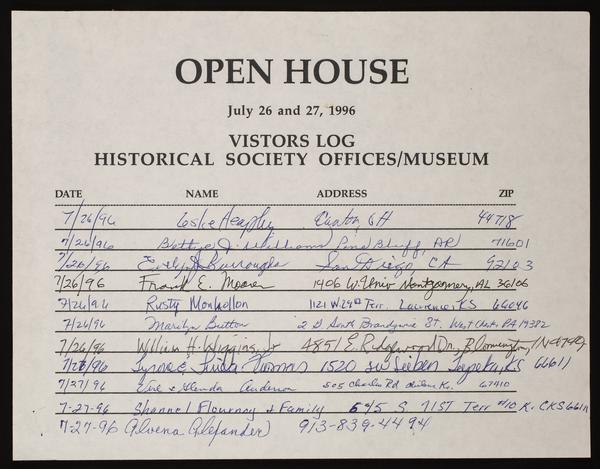 OPEN HOUSE
July 26 and 27, 1996
VISTORS LOG
HISTORICAL SOCIETY OFFICES/MUSEUM
DATE NAME ADDRESS ZIP
7/26/96 Leslie Heaphy Canton, OH 44718
7/26/96 Bettye J. Williams Pine Bluff, AR 71601
7/26/96 Burroughs San Diego, CA 92103
7/26/96 Frank E. Moorer 1406 W. Univ Montgomery, AL 36106
7/26/96 Rusty Monhollon 1121 W 29th Terr. Lawrence, KS 66046
7/26/96 Marilyn Button 2 S. South Brandywine St. West Chester, PA 19382
7/26/96 William H. Wiggins, Jr 4851 E. Ridgewood Dr. Bloomington, IN 47401
7/26/96 Lynne & Linda Thomas 1520 SW Topeka, KS 66611
7/27/96 & Glenda Anderson 505 Charles Rd 67410
7-27-96 Shannel Flournoy & Family 545 S 71ST Terr #10 K. C KS 66111
7-27-96 Alvena Alexander 913-839-4494